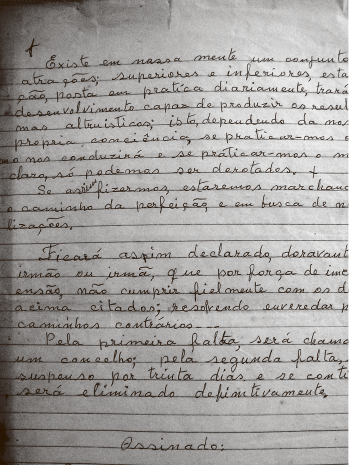 Existe em nossa mente um conjunto
atrações; superiores e inferiores, esta
ção, posta em pratica diariamente, trará
desenvolvimento capaz de produzir os resul
mas altruisticos; isto, dependendo da nos
propria conciência, se praticar-mos o
no nos conduzirá e se práticar-mos o m
claro, só podemos ser derotados. +
Se assim fizermos, estaremos marchand
o caminho da perfeição, e em busca de n
lizações.
Ficará assim declarado, doravant
irmão ou irmã, que por força de ime
ensão, não cumprir fielmente com os d
acima citados; resolvendo enveredar p
caminhos contrários...
Pela primeira falta, será chama
um concelho; pela segunda falta,
suspenso por trinta dias e se conti
será eliminado definitivamente.
Assinado: